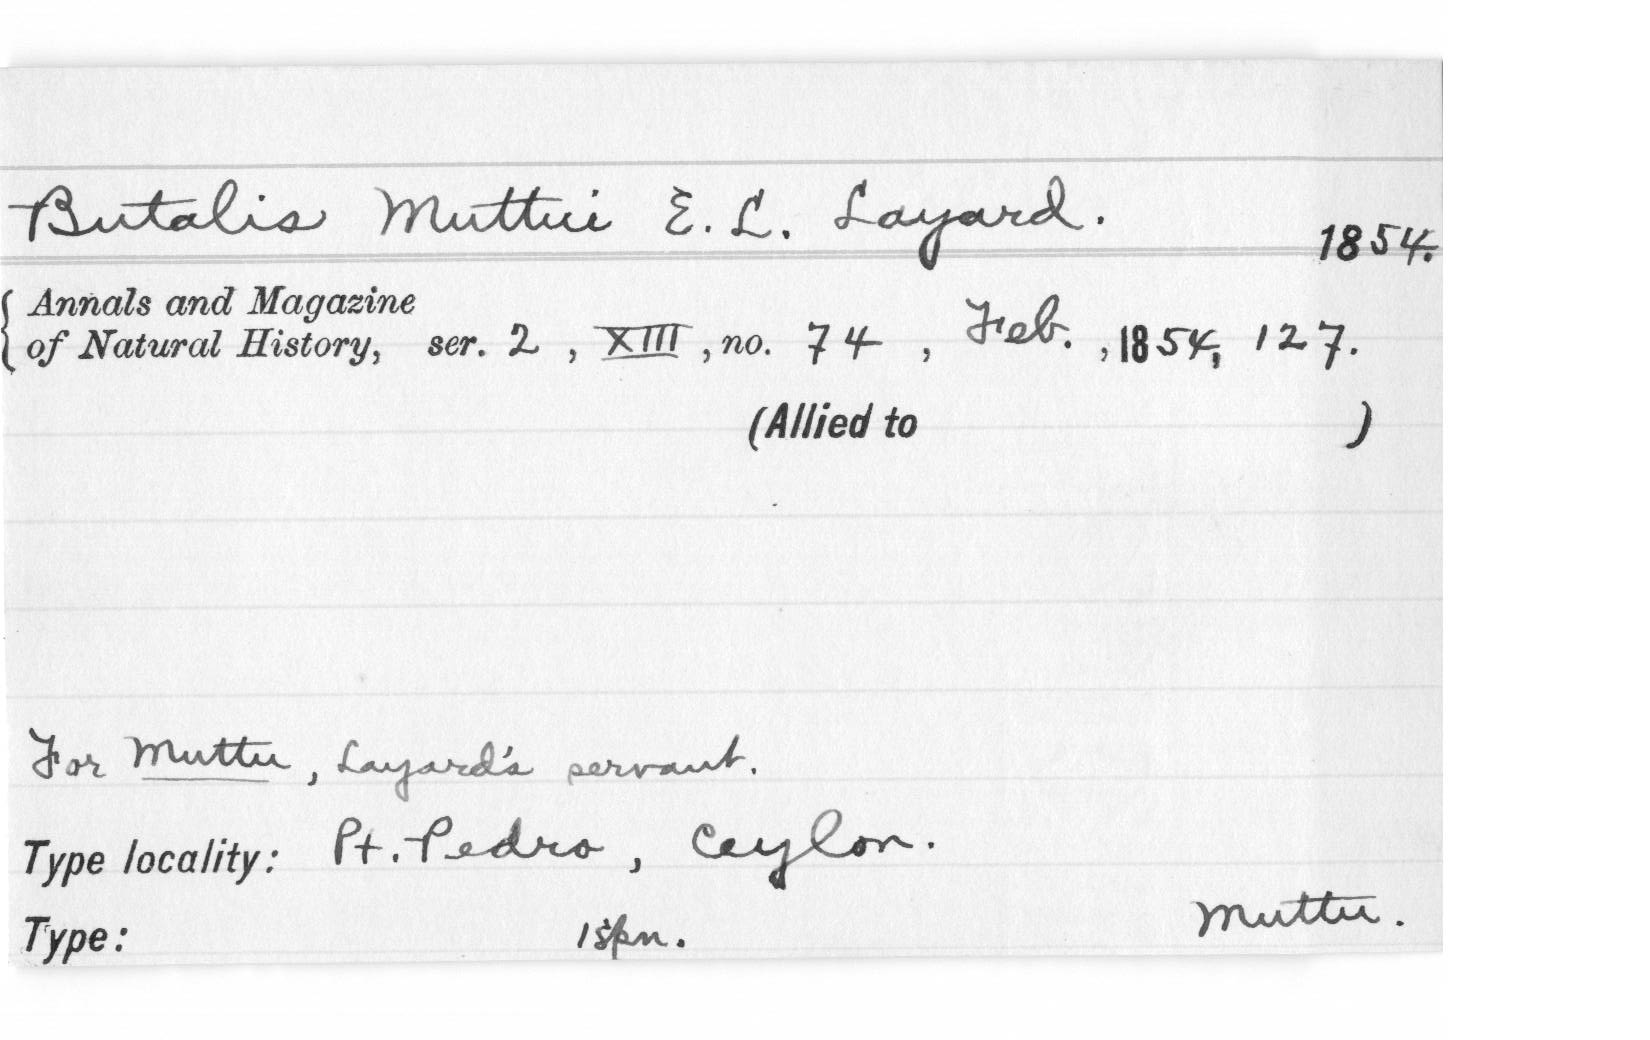 Butalis Muttui E. L. Layard.
1854.
Annals and Magazine
of Natural History, ser. 2, XIII, no. 74, Feb., 1854, 127.
(Allied to )
For Muttu, Layard's servant.
Type locality: Pt. Pedro, Ceylon.
Type: 1 spn. Muttu.